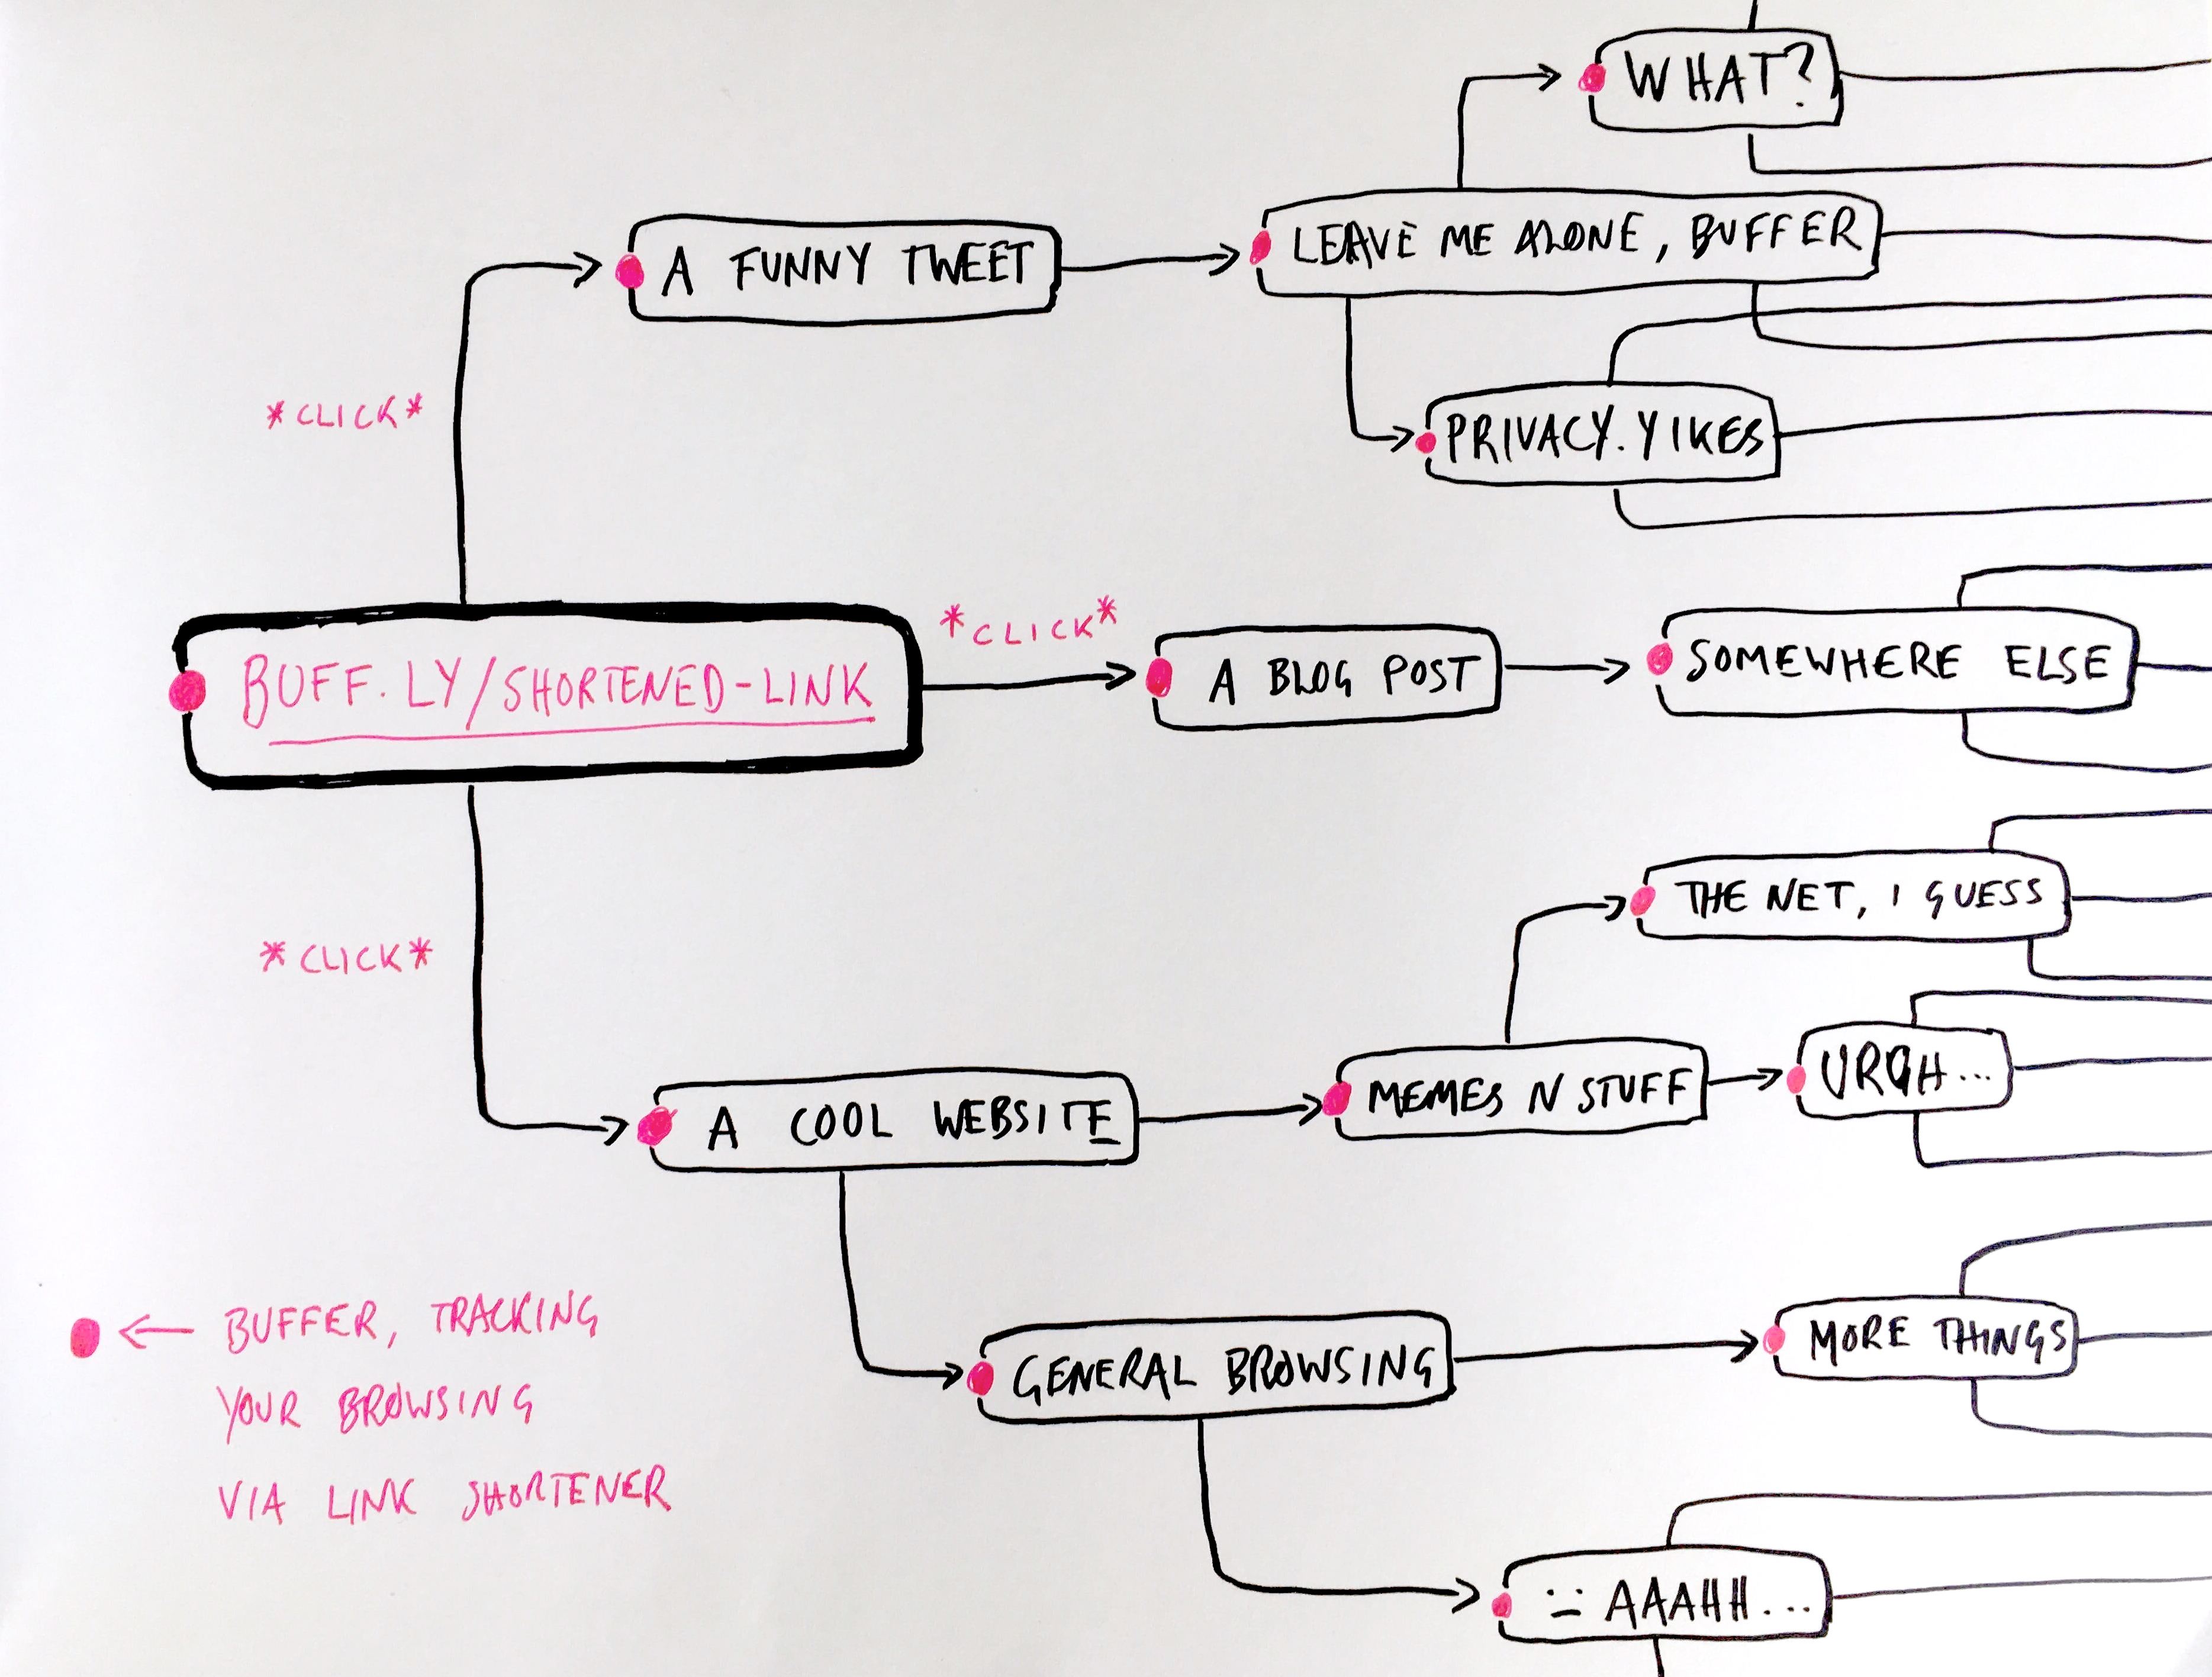 WHAT?
A FUNNY TWEET
LEAVE ME ALONE, BUFFER
*CLICK*
PRIVACY. YIKES
BUFF.LY/SHORTENED-LINK
*CLICK*
A BLOG POST
SOMEWHERE ELSE
*CLICK*
THE NET, I GUESS
A COOL WEBSITE
MEMES N STUFF
URGH...
GENERAL BROWSING
MORE THINGS
BUFFER, TRACKING
YOUR BROWSING
VIA LINK SHORTENER
AAAHH...